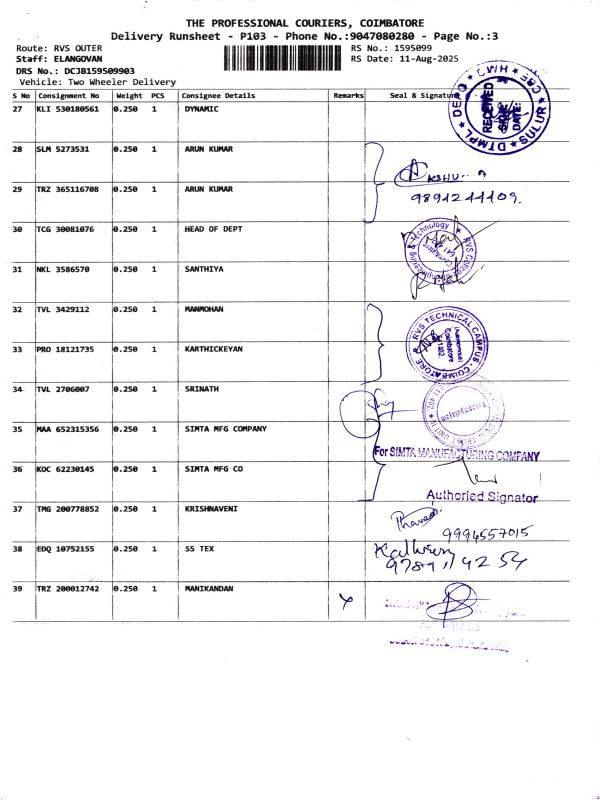 THE PROFESSIONAL COURIERS, COIMBATORE
Delivery Runsheet - P103 - Phone No.:9047080280 - Page No.:3
Route: RVS OUTER
Staff: ELANGOVAN
DRS No.: DCJB159509903
Vehicle: Two Wheeler Delivery
RS No.: 1595099
RS Date: 11-Aug-2025
S No Consignment No Weight PCS Consignee Details Remarks Seal & Signature
27 KLI 530180561 0.250 1 DYNAMIC
DEPO CWH CBE SULUR DTMPL
RECEIVED
DATE:
28 SLM 5273531 0.250 1 ARUN KUMAR
29 TRZ 365116708 0.250 1 ARUN KUMAR
9894244109.
30 TCG 30081076 0.250 1 HEAD OF DEPT
31 NKL 3586570 0.250 1 SANTHIYA
32 TVL 3429112 0.250 1 MANMOHAN
RVS TECHNICAL CAMPUS - COIMBATORE
33 PRO 18121735 0.250 1 KARTHICKEYAN
34 TVL 2706007 0.250 1 SRINATH
35 MAA 652315356 0.250 1 SIMTA MFG COMPANY
For SIMTA MANUFACTURING COMPANY
36 KOC 62230145 0.250 1 SIMTA MFG CO
Authoried Signator
37 TMG 200778852 0.250 1 KRISHNAVENI
9994557015
38 EDQ 10752155 0.250 1 SS TEX
39 TRZ 200012742 0.250 1 MANIKANDAN